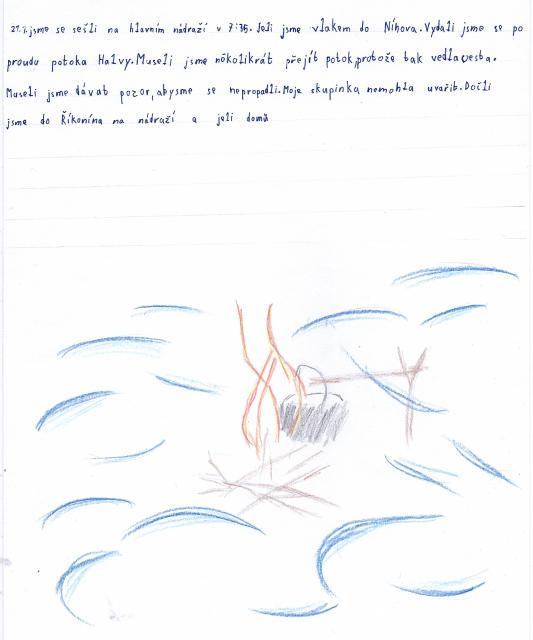 27.1. jsme se sešli na hlavním nádraží v 7:35. Jeli jsme vlakem do Níhova. Vydali jsme se po
proudu potoka Halvy. Museli jsme několikrát přejít potok, protože tak vedla cesta.
Museli jsme dávat pozor, abysme se nepropadli. Moje skupinka nemohla uvařit. Dočli
jsme do Říkonína na nádraží a jeli domů